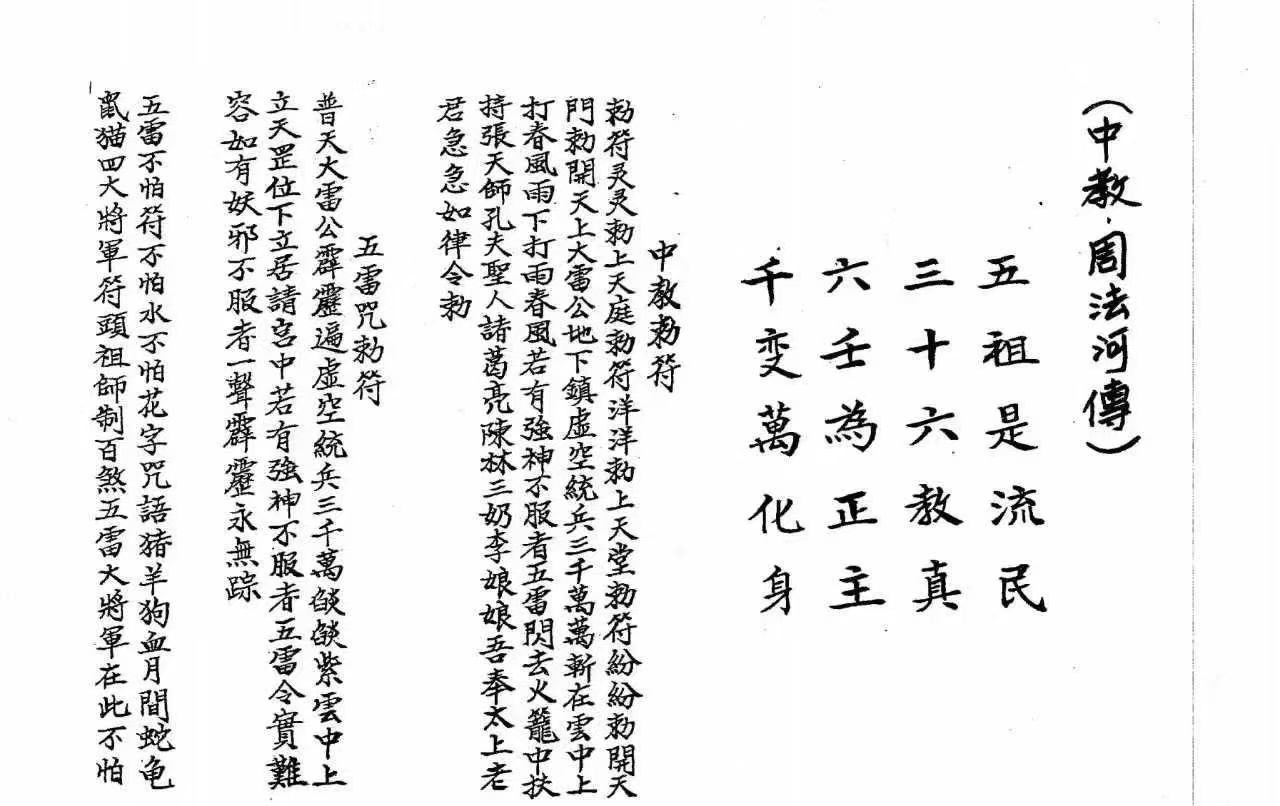 (中教·周法河傳)
五祖是流民
三十六教真
六壬為正主
千变萬化身
中教勅符
勅符灵灵勅上天庭勅符洋洋勅上天堂勅符紛紛勅開天
門勅開天上大雷公地下鎮虛空統兵三千萬萬斬在雲中上
打春風雨下打雨春風若有強神不服者五雷閃去火籠中扶
持張天師孔夫聖人諸葛亮陳林三奶李娘娘吾奉太上老
君急急如律令勅
五雷咒勅符
普天大雷公霹靂遍虛空統兵三千萬燄燄紫雲中上
立天罡位下立居請宮中若有強神不服者五雷令實難
容如有妖邪不服者一聲霹靂永無踪
五雷不怕符不怕水不怕花字咒語猪羊狗血月間蛇龟
鼠猫四大將軍符頭祖師制百煞五雷大將軍在此不怕